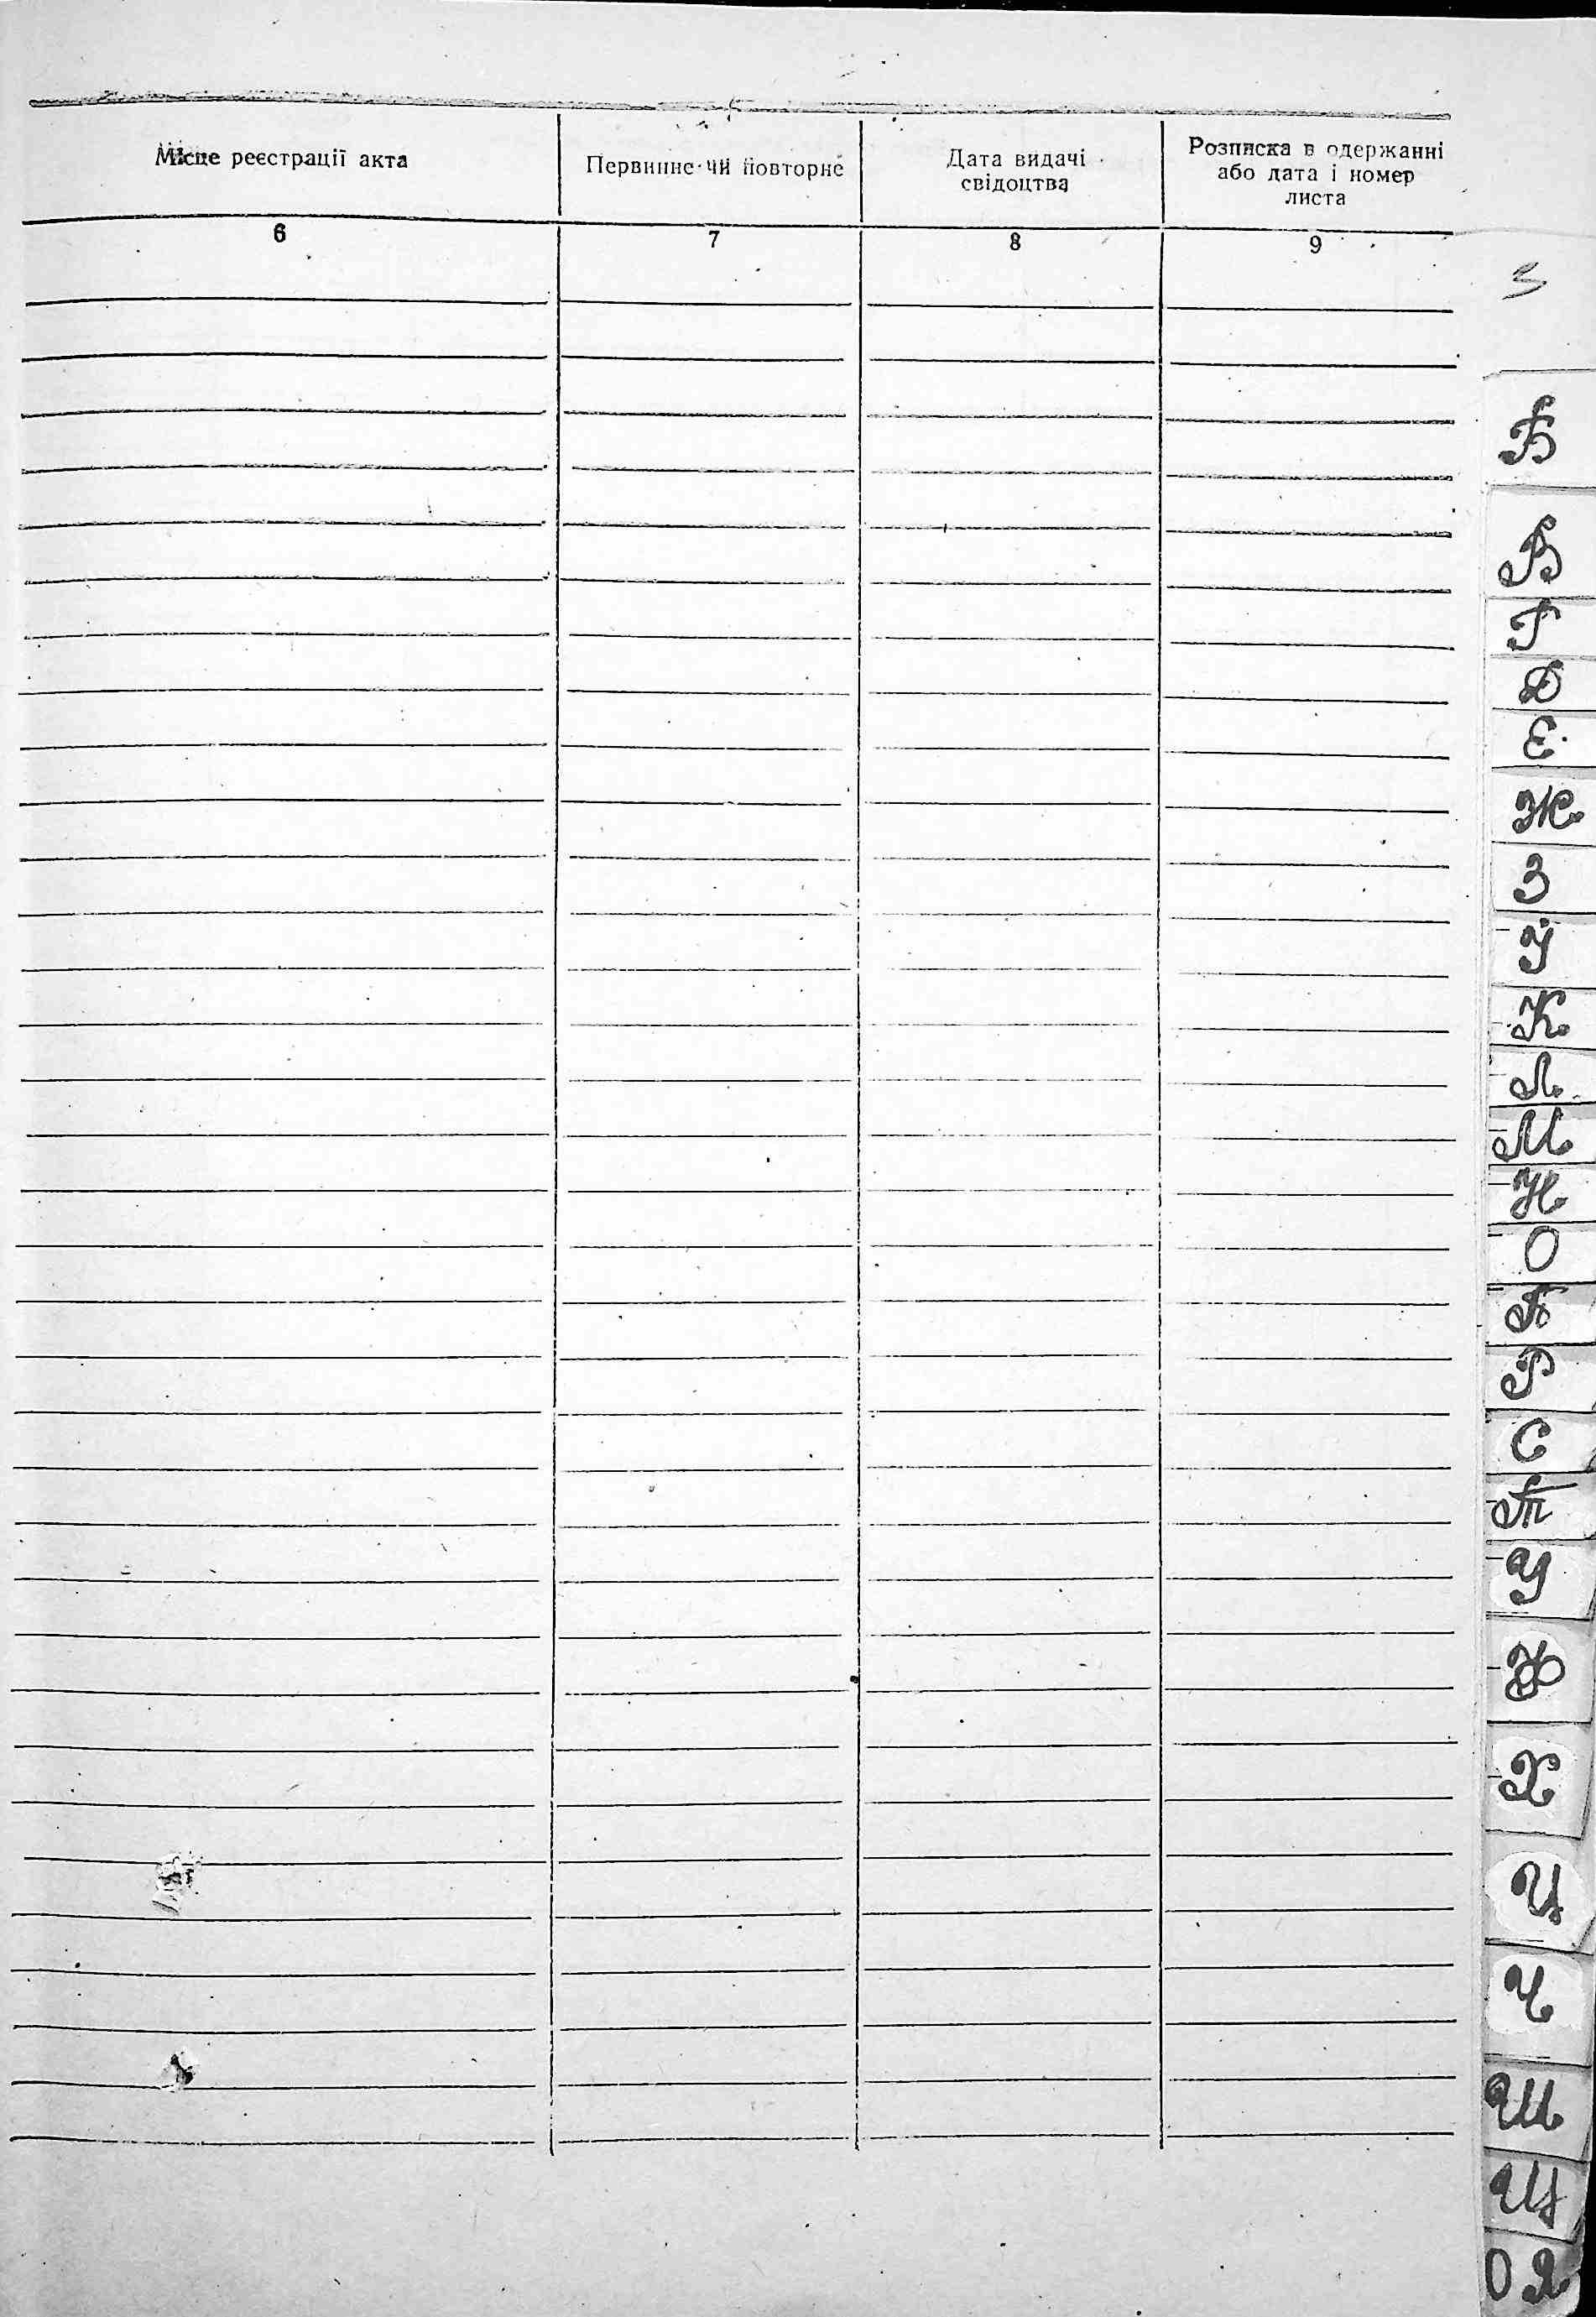 Місце реєстрації акта
Первинне чи повторне
Дата видачі
свідоцтва
Розписка в одержанні
або дата і номер
листа
6
7
8
9
Б
В
Г
Д
Е
Ж
З
І
К
Л
М
Н
О
П
Р
С
Т
У
Ф
Х
Ц
Ч
Ш
Щ
Я